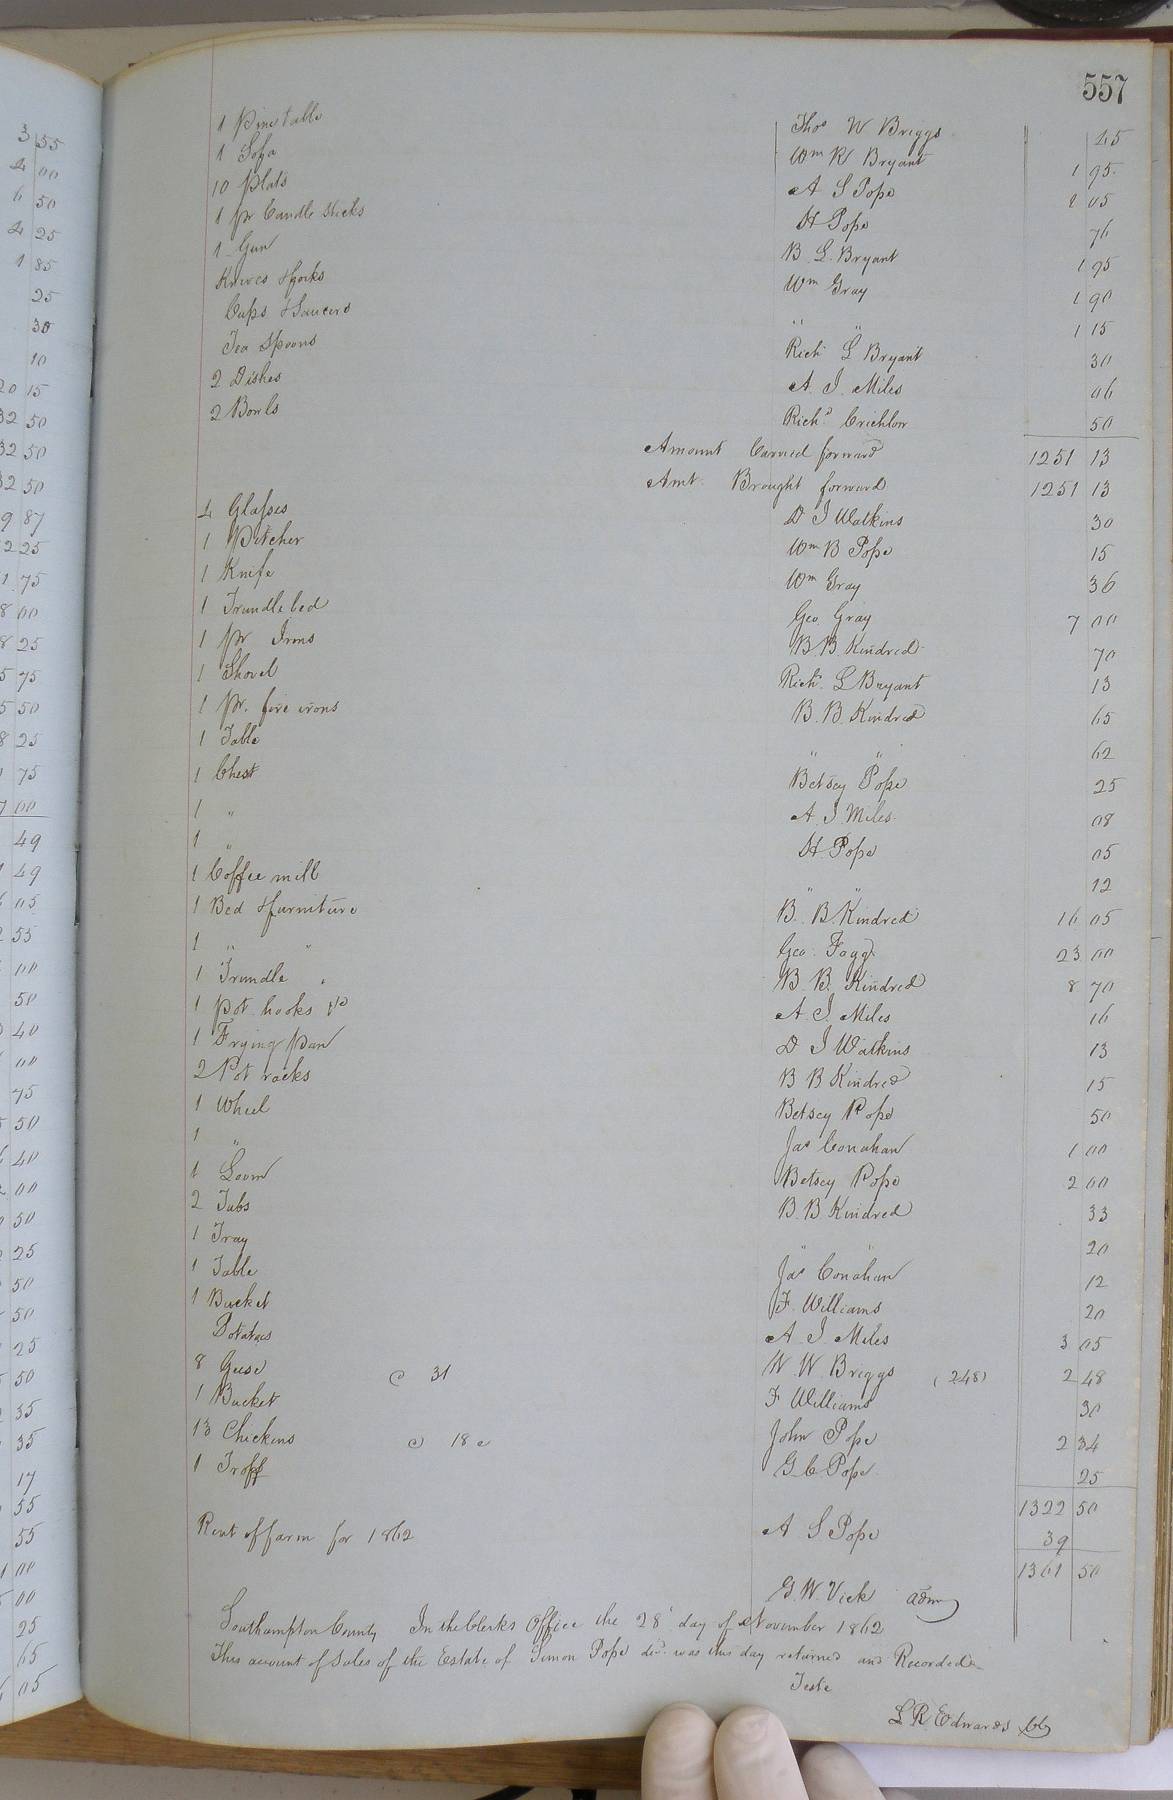 557
1 Pine table Thos W Briggs 45
1 Sofa Wm R Bryant 1 95
10 plats A S Pope 2 05
1 pr Candle sticks H Pope 76
1 Gun B. L. Bryant 1 95
Knives & forks Wm Gray 1 90
Cups & Saucers " " 1 15
Tea Spoons Rich L Bryant 30
2 Dishes A. J. Miles 06
2 Bowls Richd Crichlow 50
Amount Carried forward 1251 13
Amt. Brought forward 1251 13
4 Glasses D J Watkins 30
1 Pitcher Wm B Pope 15
1 Knife Wm Gray 36
1 Trundle bed Geo Gray 7 00
1 pr Irons B. B. Kindred 70
1 Shovel Rich. L Bryant 13
1 pr. fire irons B. B. Kindred 65
1 Table " " 62
1 Chest Betsey Pope 25
1 " A. J. Miles 08
1 " H. Pope 05
1 Coffee mill " " 12
1 Bed & furniture B. B. Kindred 16 05
1 " " Geo. Fagg 23 00
1 Trundle " B. B. Kindred 8 70
1 pot hooks &c A. J. Miles 16
1 Frying pan D J Watkins 13
2 Pot racks B B Kindred 15
1 Wheel Betsey Pope 50
1 " Jas Conahan 1 00
1 Loom Betsey Pope 2 00
2 Tubs B. B. Kindred 33
1 Tray " " 20
1 Table Jas Conahan 12
1 Bucket F. Williams 20
Potatoes A. J. Miles 3 05
8 Geese @ 31 W. W. Briggs (248) 2 48
1 Bucket F Williams 30
13 Chickens @ 18 c John Pope 2 34
1 Troff G C Pope 25
1322 50
Rent of farm for 1862 A S Pope 39
1361 50
G. W. Vick adm
Southampton County In the Clerks Office the 28 day of November 1862
This account of Sales of the Estate of Simon Pope decd. was this day returned and Recorded
Teste
L R Edwards Clk
3 55
4 00
6 50
4 25
1 85
25
30
10
20 15
32 50
32 50
32 50
9 87
2 25
1 75
8 00
8 25
5 75
5 50
8 25
75
7 00
49
49
05
55
00
50
40
00
75
50
40
00
50
25
50
50
25
50
35
35
17
55
55
00
00
25
65
05